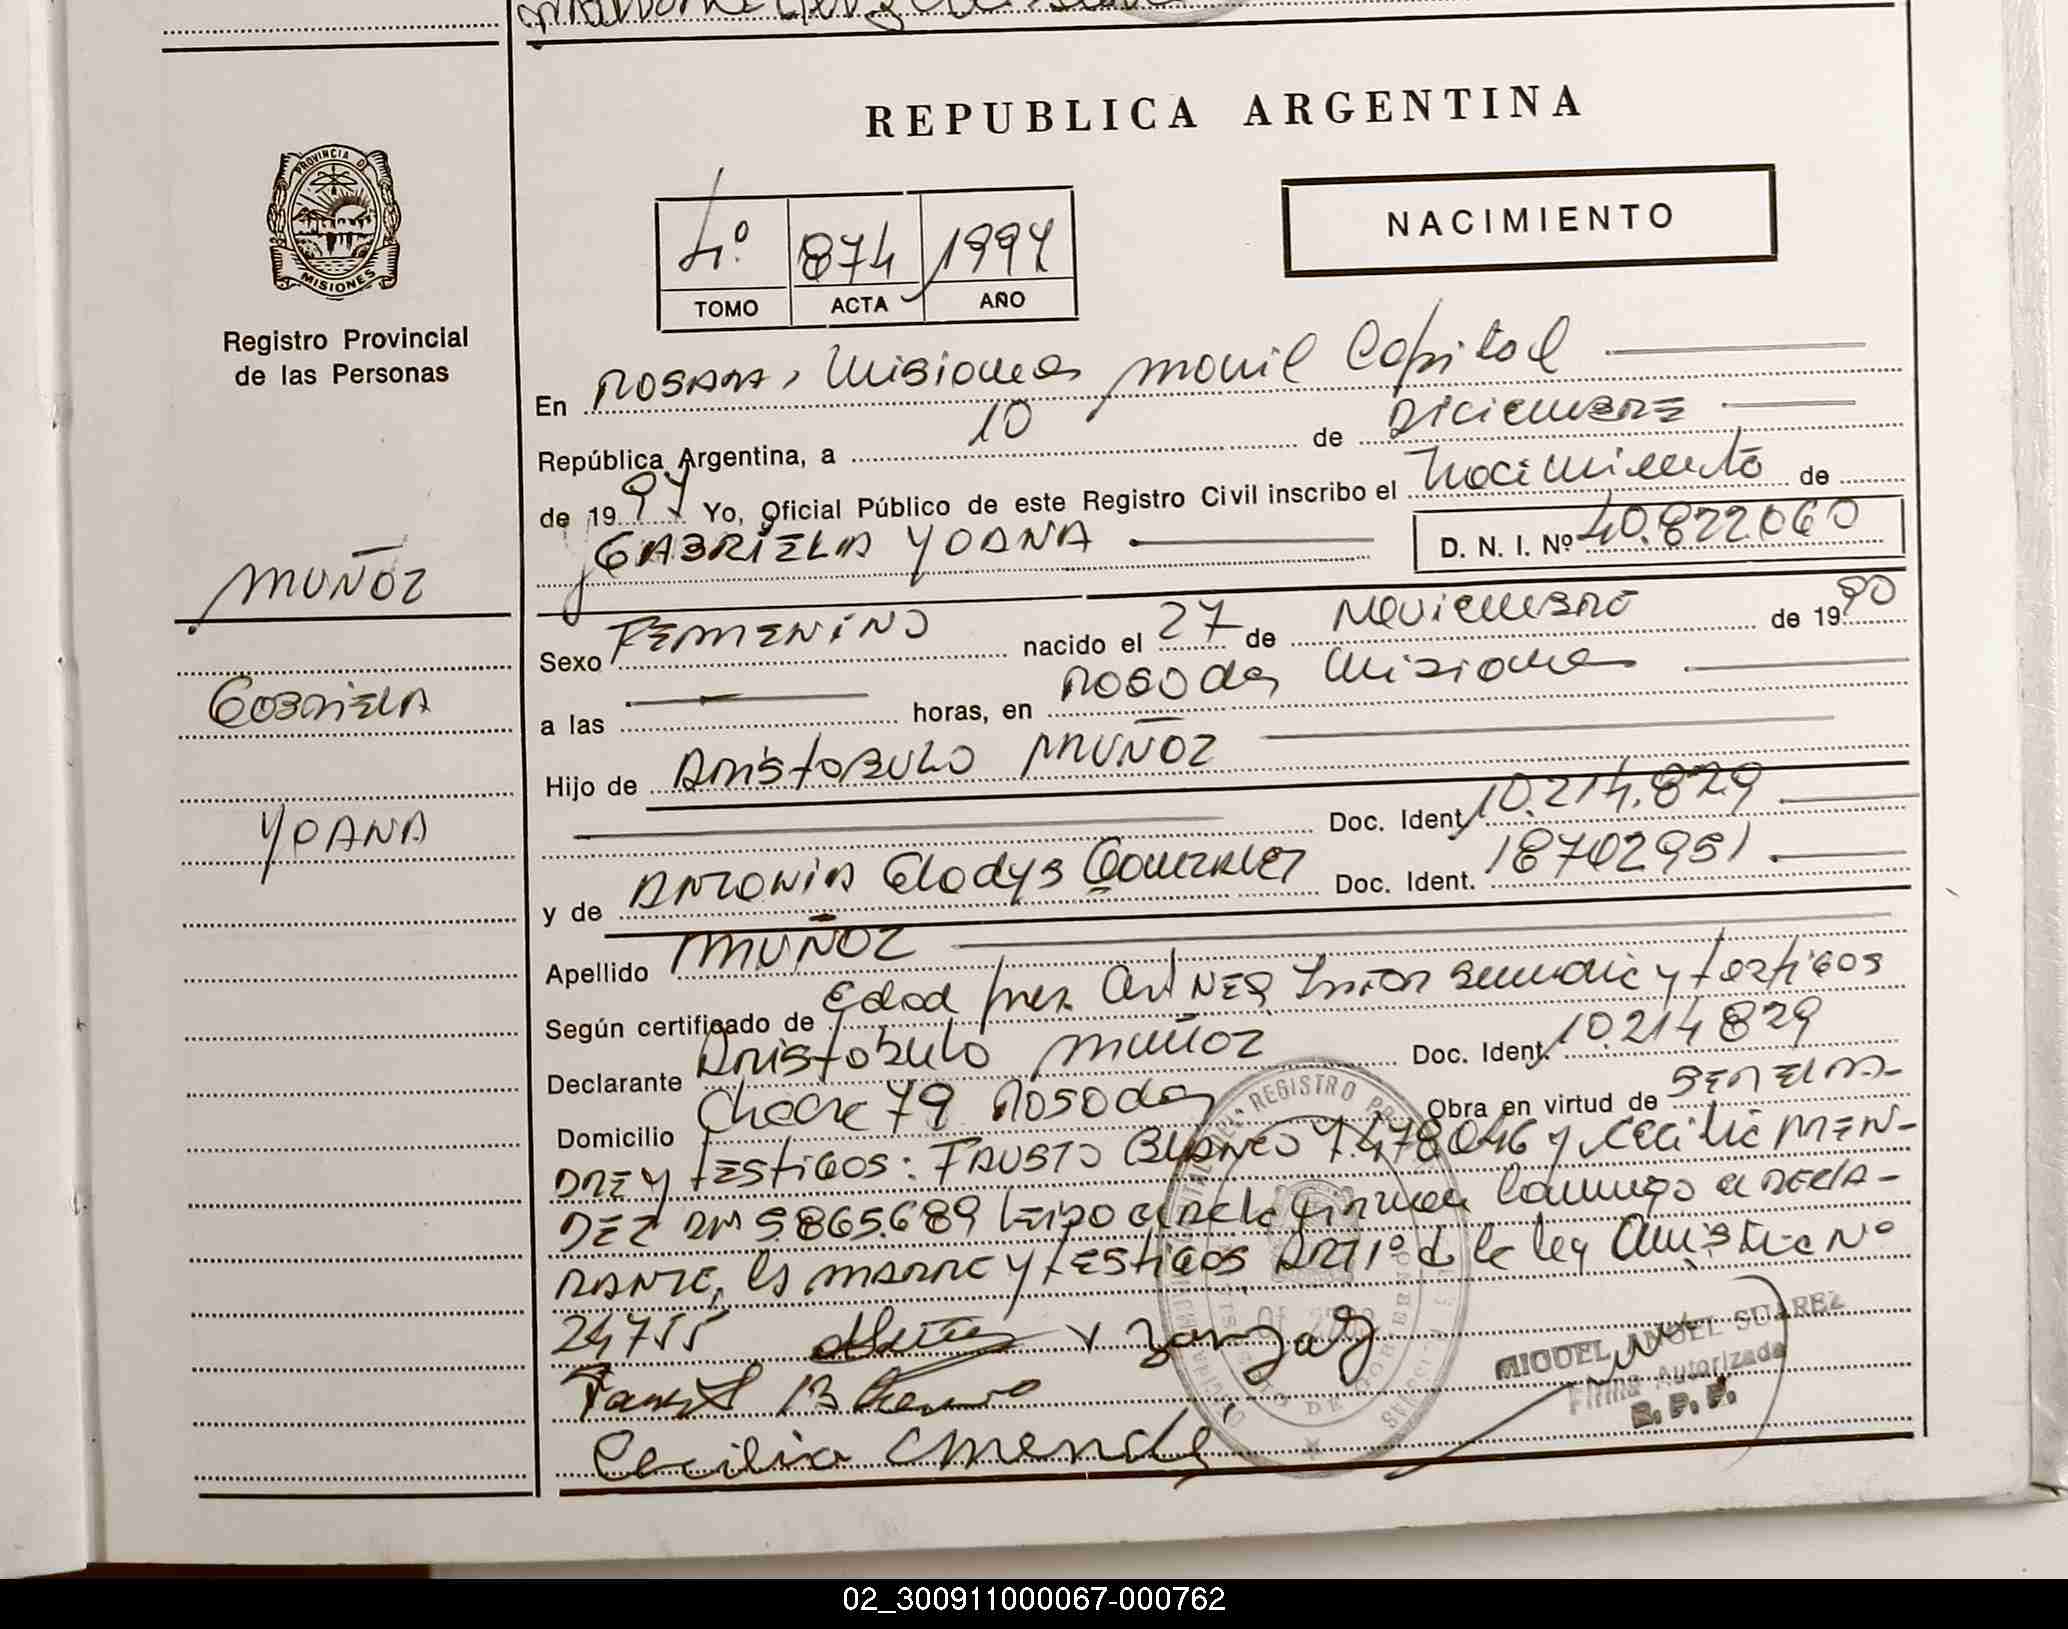 REPUBLICA ARGENTINA
PROVINCIA DE
MISIONES
Registro Provincial
de las Personas
NACIMIENTO
4º 874 1997
TOMO ACTA AÑO
En POSADAS, Misiones movil Capital
República Argentina, a 10 de Diciembre
de 1997 Yo, Oficial Público de este Registro Civil inscribo el Nacimiento de
GABRIELA YOANA D. N. I. Nº 40.822.060
MUÑOZ
Sexo FEMENINO nacido el 27 de Noviembre de 1990
GABRIELA
a las horas, en Posadas Misiones
Hijo de ARISTOBULO MUÑOZ
YOANA
Doc. Ident. 10.214.829
y de ANTONIA Gladys Gonzalez Doc. Ident. 18702951
Apellido MUÑOZ
Según certificado de Edad y testigos
Declarante Aristobulo Muñoz Doc. Ident. 10214829
Domicilio Chacra 79 Posadas Obra en virtud de
DRE y testigos: FAUSTO Blanco 7.478046 y Cecilia MEN-
DEZ 5.865.689 Leido el acta firman conmigo el DECLA-
RANTE, la MADRE y testigos ART 1º de la ley Amistia Nº
24755
MIGUEL ANGEL SUAREZ
Firma Autorizada
R. P. P.
Cecilia Mende
02_300911000067-000762